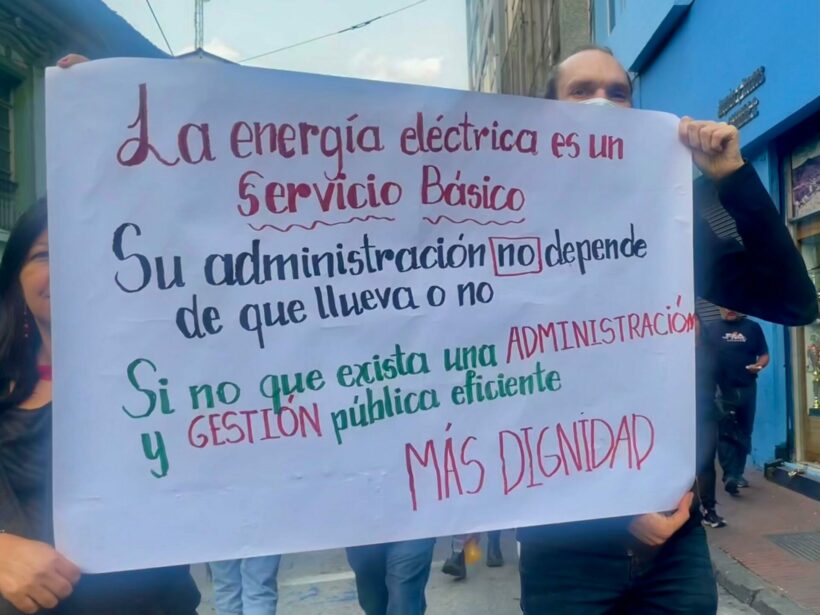 La energía eléctrica es un
Servicio Básico
Su administración no depende
de que llueva o no
Si no que exista una ADMINISTRACIÓN
y GESTIÓN pública eficiente
MÁS DIGNIDAD